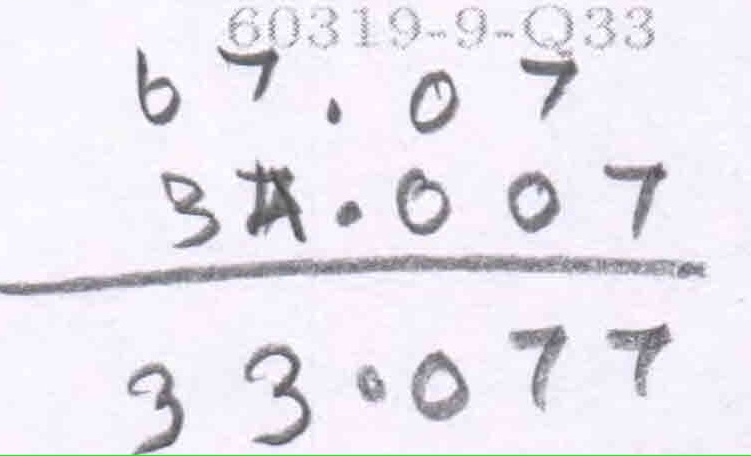 60319-9-Q33
67.07
34.007
33.077